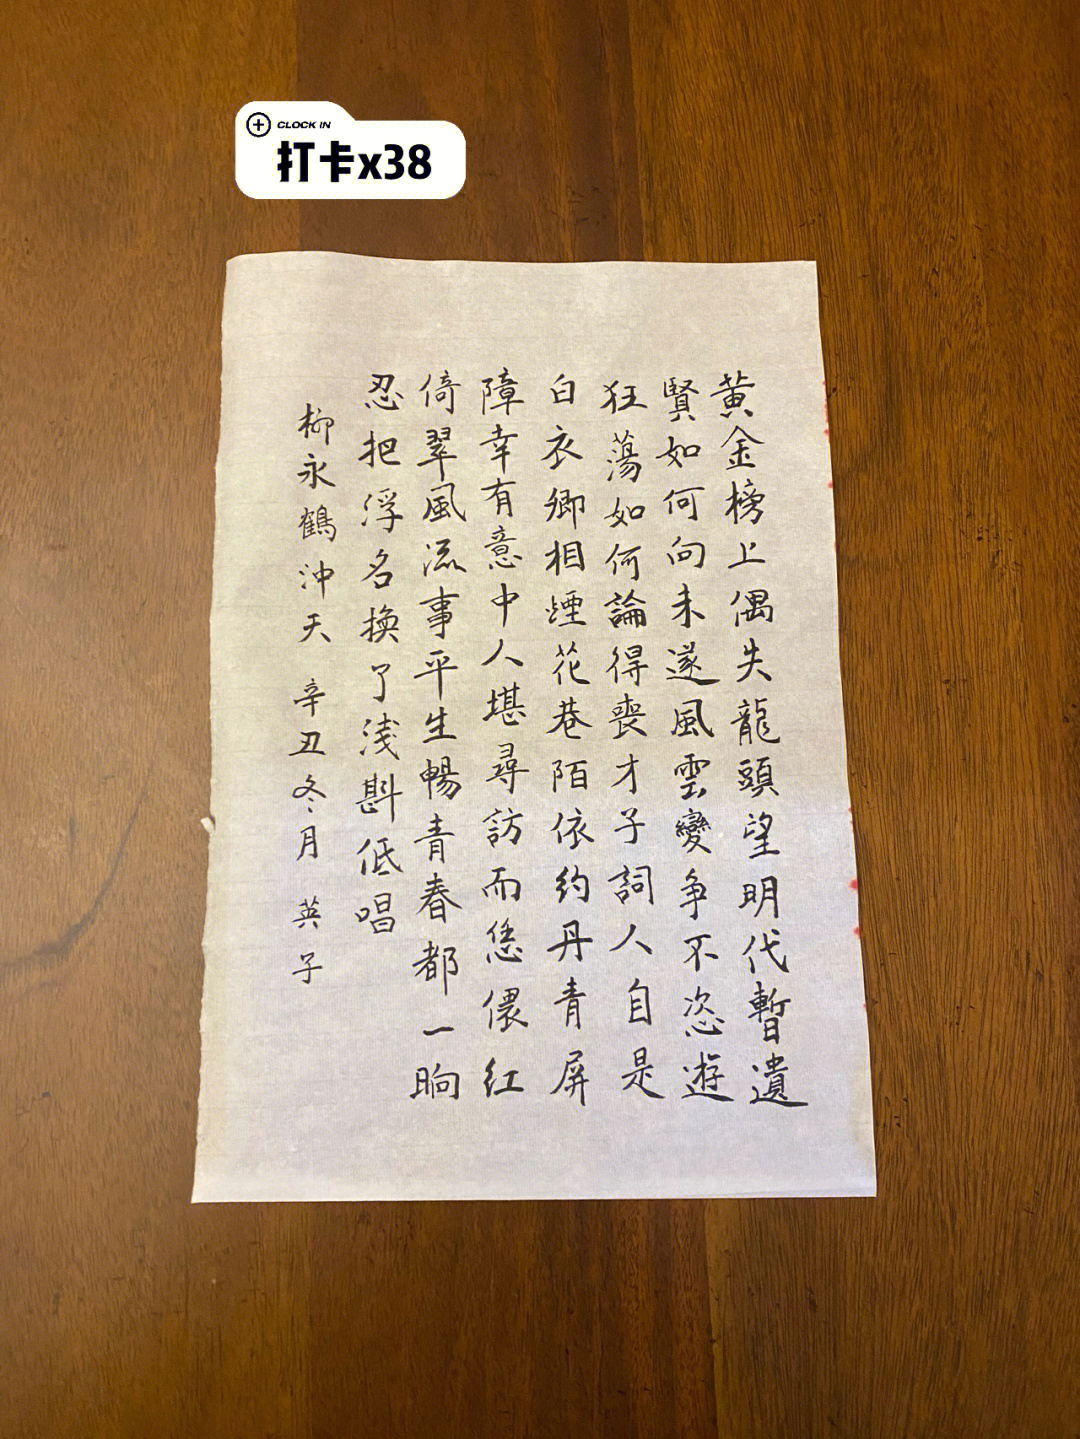 CLOCK IN
打卡x38
黄金榜上偶失龍頭望明代暫遺
賢如何向未遂風雲變争不恣遊
狂蕩如何論得喪才子詞人自是
白衣卿相煙花巷陌依約丹青屏
障幸有意中人堪尋訪而恁偎紅
倚翠風流事平生暢青春都一晌
忍把浮名換了浅斟低唱
柳永鶴沖天 辛丑冬月 英子